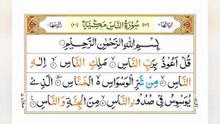 سُوْرَةُ النَّاسِ مَكِّيَّةٌ
بِسْمِ اللّٰهِ الرَّحْمٰنِ الرَّحِيْمِ
قُلْ اَعُوْذُ بِرَبِّ النَّاسِ مَلِكِ النَّاسِ اِلٰهِ
النَّاسِ مِنْ شَرِّ الْوَسْوَاسِ الْخَنَّاسِ الَّذِيْ
يُوَسْوِسُ فِيْ صُدُوْرِ النَّاسِ مِنَ الْجِنَّةِ وَالنَّاسِ